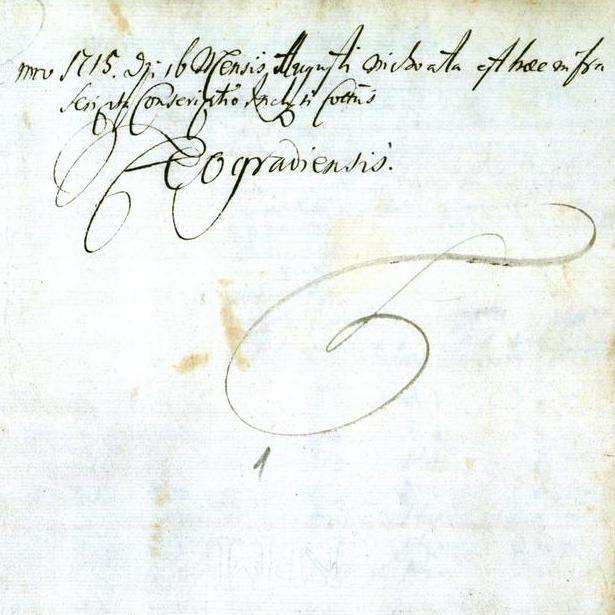 nno 1715. Dji 16 Mensis Augusti inchoata est hæc infra
scripta Conscriptio Inclyti Cottus
Neogradiensis.
1